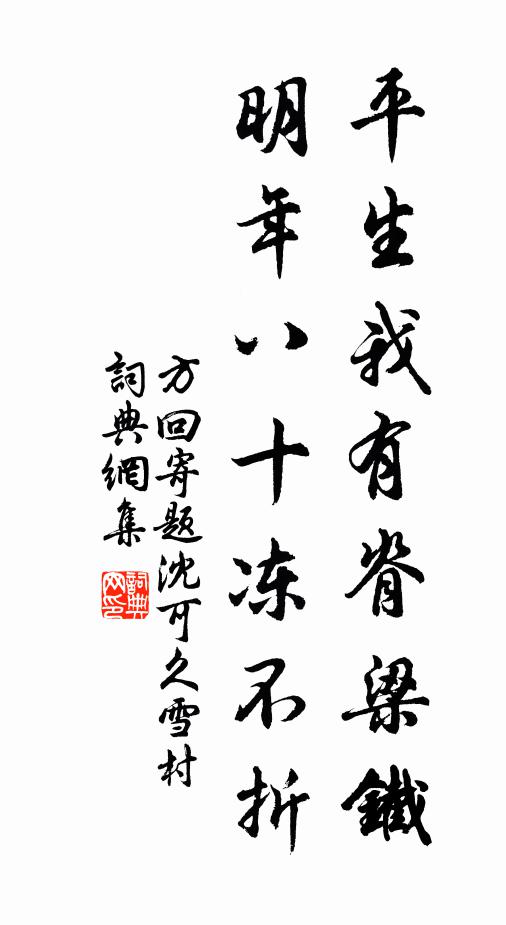 平生我有脊梁鐵
明年八十冻不折
方回寄题沈可久雪村
詞典網集
詞典网印